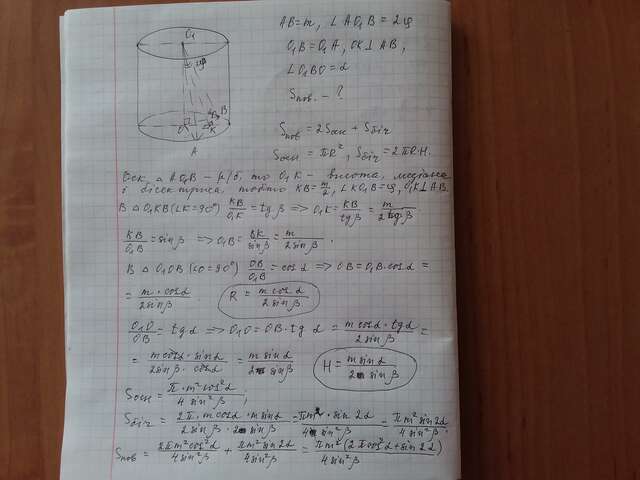 O₁
2φ
B
O
K
A
AB = m, ∠AO₁B = 2φ
O₁B = O₁A, OK ⊥ AB,
∠O₁BO = α
Sпов. - ?
Sпов = 2Sосн + Sбіч
Sосн = πR², Sбіч = 2πR·H.
Оск. △AO₁B - р/б, то O₁K - висота, медіана
і бісектриса, тобто KB = m/2, ∠KO₁B = φ, O₁K ⊥ AB.
В △O₁KB (∠K = 90°) KB/O₁K = tg β ⇒ O₁K = KB/tg β = m/2tg β.
KB/O₁B = sin β ⇒ O₁B = BK/sin β = m/2sin β.
В △O₁OB (∠O = 90°) OB/O₁B = cos α ⇒ OB = O₁B·cos α =
= m·cos α/2sin β. R = m cos α/2 sin β
O₁O/OB = tg α ⇒ O₁O = OB·tg α = m cos α·tg α/2 sin β =
= m cos α·sin α/2sin β·cos α = m sin α/2 sin β H = m sin α/2 sin β
Sосн = π·m² cos² α/4 sin² β;
Sбіч = 2π·m cos α·m sin α/2 sin β·2 sin β = πm²·sin 2α/4 sin² β = πm² sin 2α/4 sin² β.
Sпов = 2πm² cos² α/4 sin² β + πm² sin 2α/4 sin² β = πm² (2π cos² α + sin 2α)/4 sin² β